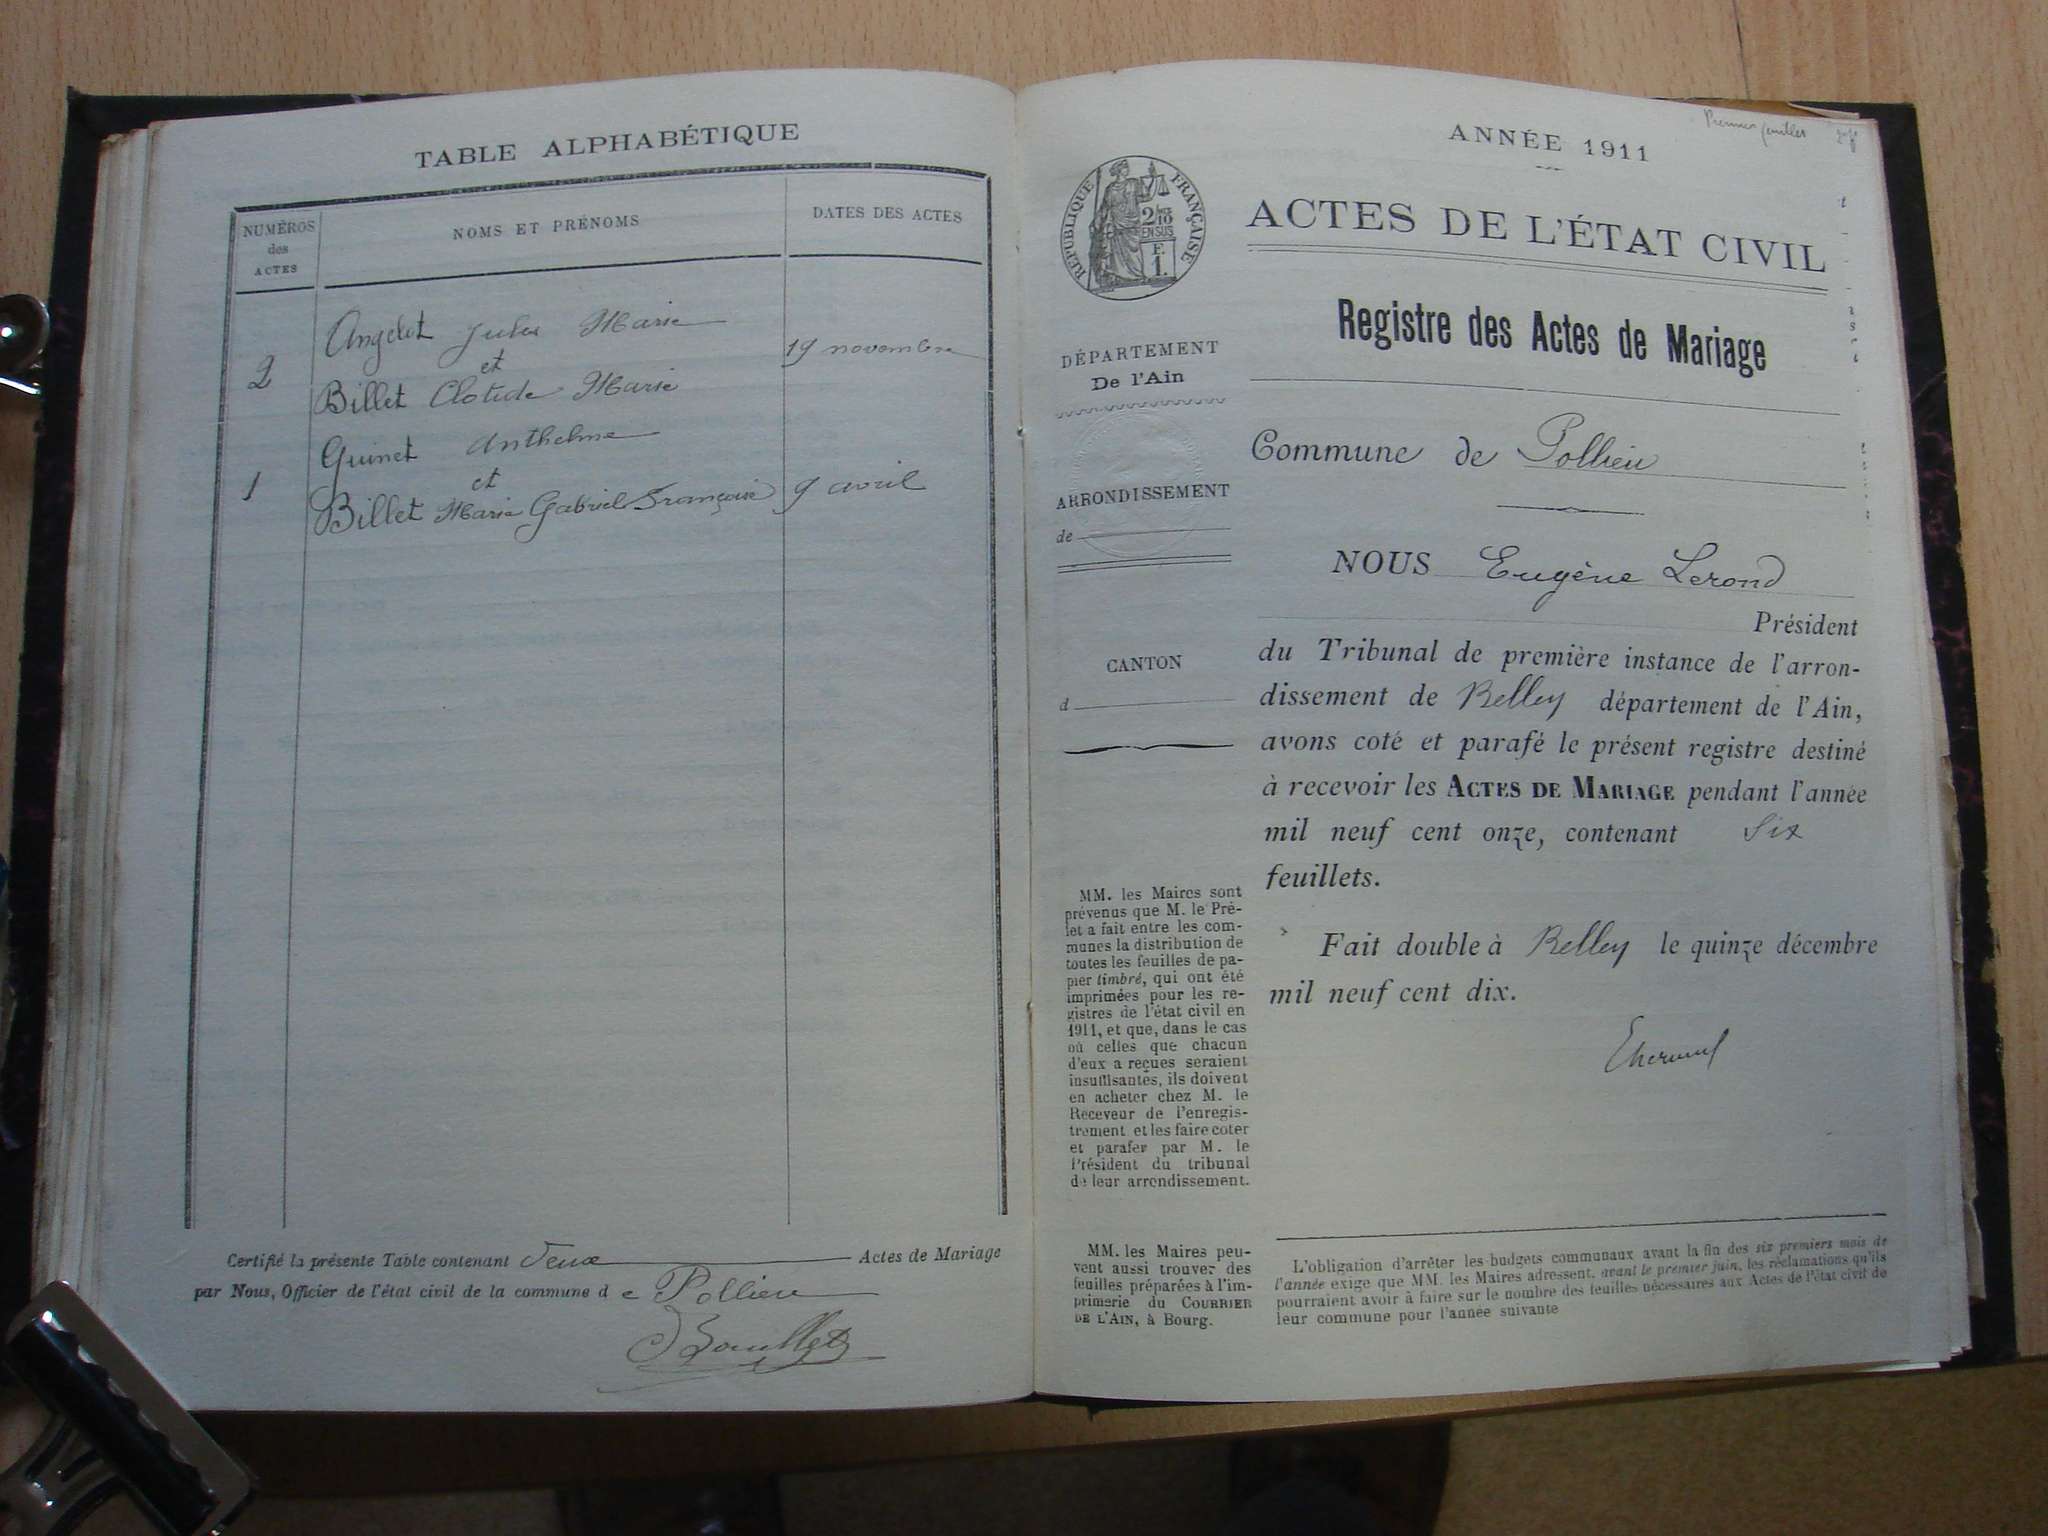 TABLE ALPHABÉTIQUE
NUMÉROS
des
ACTES
NOMS ET PRÉNOMS
DATES DES ACTES
Angelot Jules Marie
et
2
19 novembre
Billet Clotide Marie
Guinet Anthelme
et
1
9 avril
Billet Marie Gabriel Françoise
Certifié la présente Table contenant Deux Actes de Mariage
par Nous, Officier de l'état civil de la commune de Pollieu
Premier feuillet
ANNÉE 1911
RÉPUBLIQUE FRANÇAISE
2/10
EN SUS
F.
1.
ACTES DE L'ÉTAT CIVIL
Registre des Actes de Mariage
DÉPARTEMENT
De l'Ain
Commune de Pollieu
ARRONDISSEMENT
de
NOUS Eugène Lerond
Président
CANTON
d
du Tribunal de première instance de l'arron-
dissement de Belley département de l'Ain,
avons coté et parafé le présent registre destiné
à recevoir les ACTES DE MARIAGE pendant l'année
mil neuf cent onze, contenant Six
feuillets.
Fait double à Belley le quinze décembre
mil neuf cent dix.
MM. les Maires sont
prévenus que M. le Pré-
fet a fait entre les com-
munes la distribution de
toutes les feuilles de pa-
pier timbré, qui ont été
imprimées pour les re-
gistres de l'état civil en
1911, et que, dans le cas
où celles que chacun
d'eux a reçues seraient
insuffisantes, ils doivent
en acheter chez M. le
Receveur de l'enregis-
trement et les faire coter
et parafer par M. le
Président du tribunal
de leur arrondissement.
MM. les Maires peu-
vent aussi trouver des
feuilles préparées à l'im-
primerie du COURRIER
DE L'AIN, à Bourg.
L'obligation d'arrêter les budgets communaux avant la fin des six premiers mois de
l'année exige que MM. les Maires adressent, avant le premier juin, les réclamations qu'ils
pourraient avoir à faire sur le nombre des feuilles nécessaires aux Actes de l'état civil de
leur commune pour l'année suivante